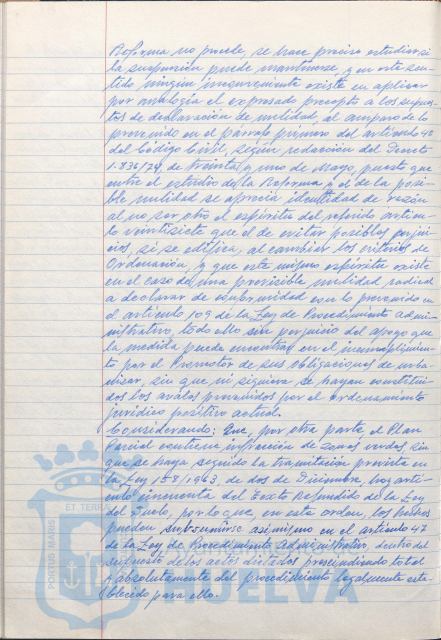 Reforma no puede, se hace preciso estudiar si
la suspensión puede mantenerse, y en este sen-
tido ningún inconveniente existe en aplicar
por analogía el expresado precepto a los supues-
tos de declaración de nulidad, al amparo de lo
prevenido en el párrafo primero del artículo 4º
del Código Civil, según redacción del Decreto
1.836/74, de treinta y uno de Mayo, puesto que
entre el estudio de la Reforma y el de la posi-
ble nulidad se aprecia identidad de razón
al no ser otro el espíritu del referido artícu-
lo veintisiete que el de evitar posibles perjui-
cios, si se edifica, al cambiar los criterios de
Ordenación, y que este mismo espíritu existe
en el caso de una previsible nulidad radical
a declarar de conformidad con lo prevenido en
el artículo 109 de la Ley de Procedimiento Admi-
nistrativo, todo ello sin perjuicio del apoyo que
la medida pueda encontrar en el incumplimien-
to por el Promotor de sus obligaciones de urba-
nizar, sin que ni siquiera se hayan constitui-
dos los avales prevenidos por el ordenamiento
jurídico positivo actual.
Considerando: Que, por otra parte el Plan
Parcial contiene infracción de zonas verdes sin
que se haya seguido la tramitación prevista en
la Ley 158/1963, de dos de Diciembre, hoy artí-
culo cincuenta del Texto Refundido de la Ley
del Suelo, por lo que, en este orden, los hechos
pueden subsumirse asimismo en el artículo 47
de la Ley de Procedimiento Administrativo, dentro del
supuesto de los actos dictados prescindiendo total
y absolutamente del procedimiento legalmente esta-
blecido para ello.
PORTUS MARIS
ET TERRAE
HUELVA